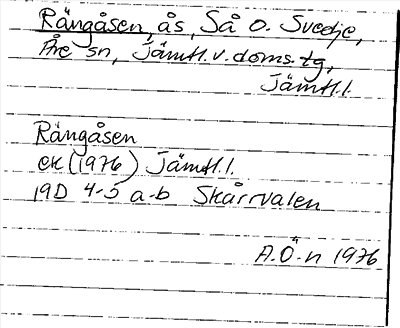 Rängåsen, ås, Så o. Svedje,
Åre sn, Jämtl. v. doms. tg,
Jämtl. l.
Rängåsen
ek (1976) Jämtl. l.
19D 4-5 a-b Skårrvalen
A.Ö-n 1976